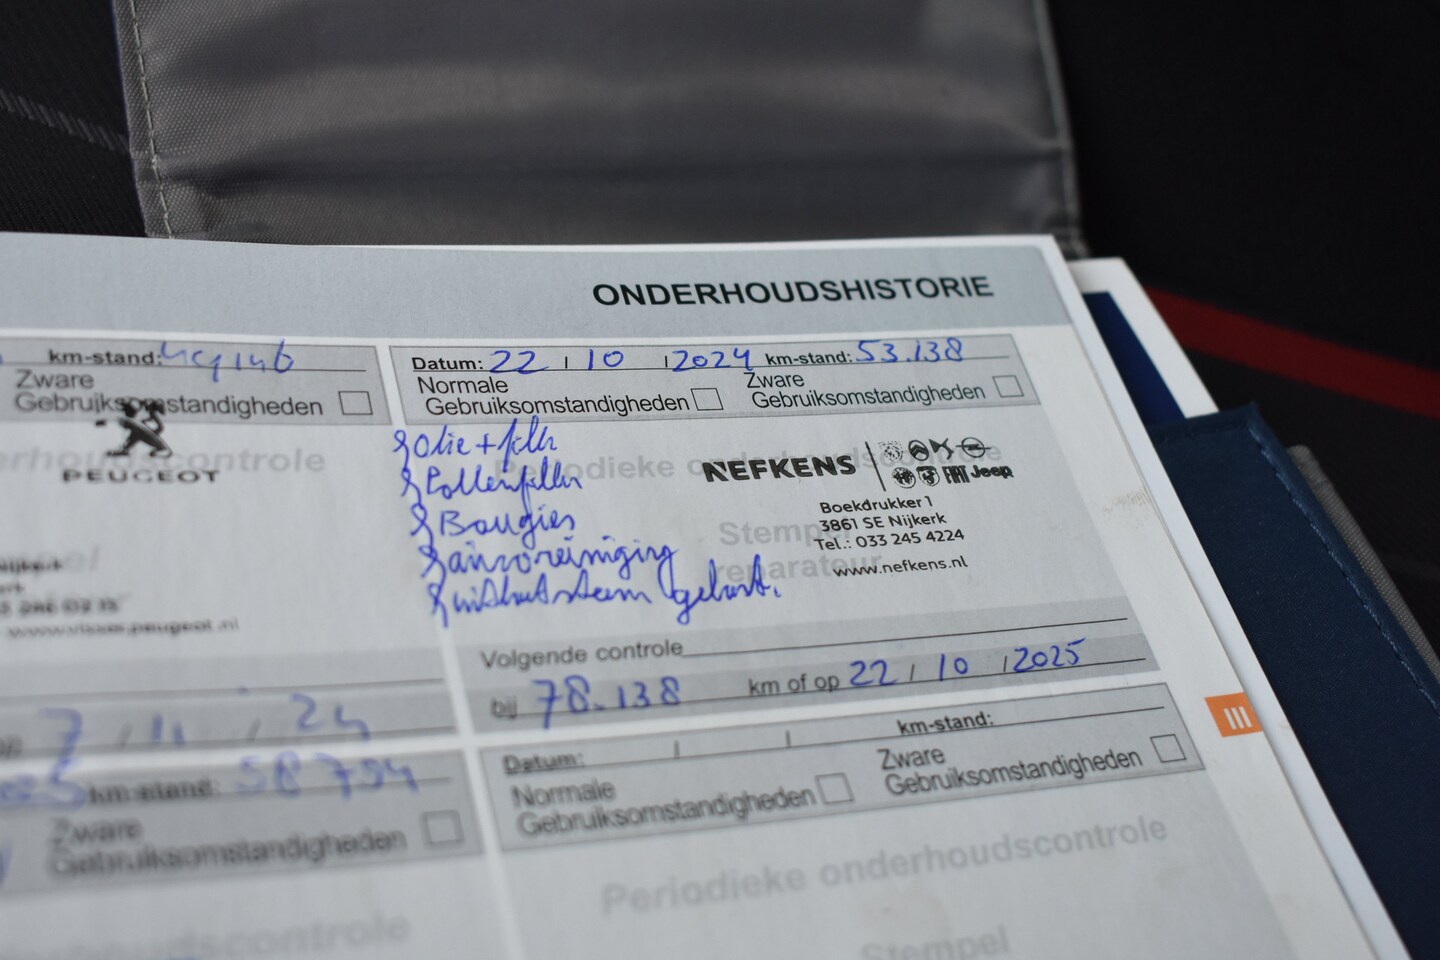 ONDERHOUDSHISTORIE
km-stand:
Zware
Gebruiksomstandigheden
PEUGEOT
Datum: 22 / 10 / 2024 km-stand: 53.138
Normale
Gebruiksomstandigheden
Zware
Gebruiksomstandigheden
Olie + filter
Pollenfilter
Bougies
Bougies
Periodieke onderhoudscontrole
Stempel
reparateur
NEFKENS
FIAT Jeep
Boekdrukker 1
3861 SE Nijkerk
Tel.: 033 245 4224
www.nefkens.nl
Volgende controle
bij 78.138 km of op 22 / 10 / 2025
7 / 11 / 24
km-stand: 58794
Zware
Gebruiksomstandigheden
Datum: / / km-stand:
Normale
Gebruiksomstandigheden
Zware
Gebruiksomstandigheden
Periodieke onderhoudscontrole
Stempel
III